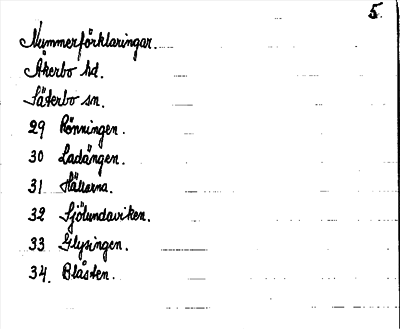 5.
Nummerförklaringar.
Åkerbo hd.
Säterbo sn.
29 Rönningen.
30 Ladängen.
31 Hällarna.
32 Sjölundaviken.
33 Glysingen.
34. Blåsten.